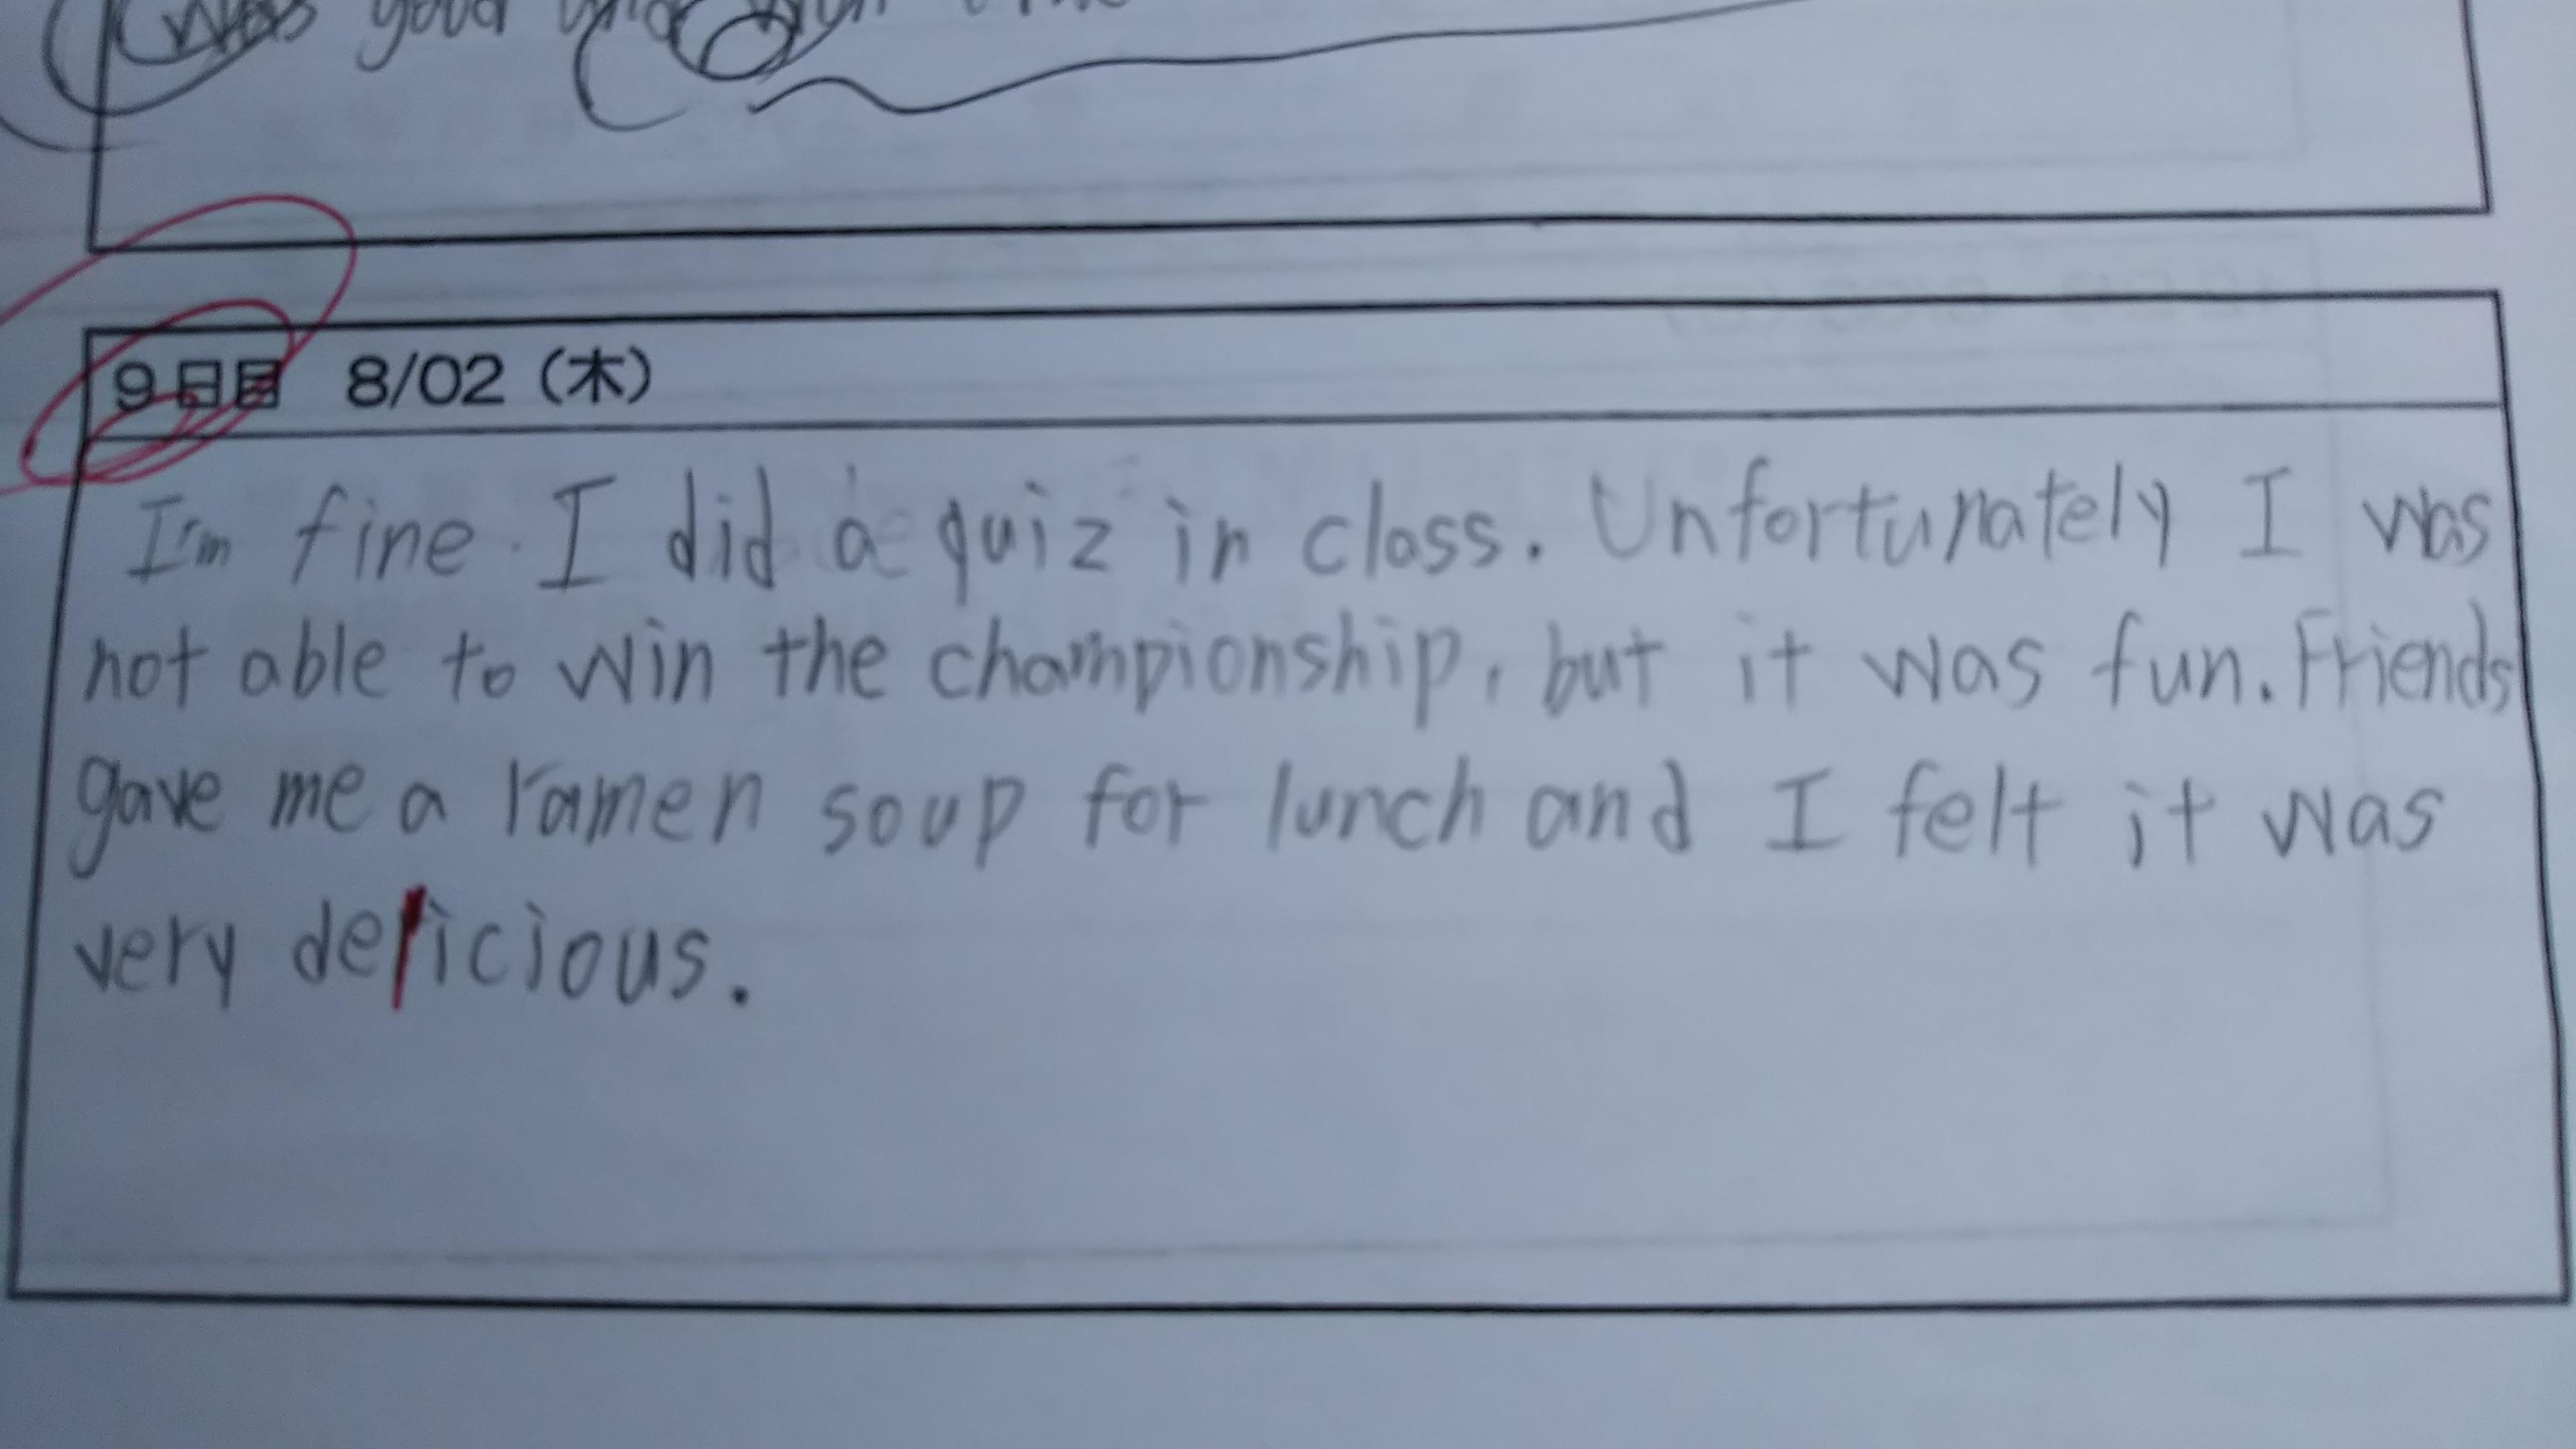 good
9日目 8/02（木）
I'm fine. I did a quiz in class. Unfortunately I was
not able to win the championship, but it was fun. Friends
gave me a ramen soup for lunch and I felt it was
very delicious.